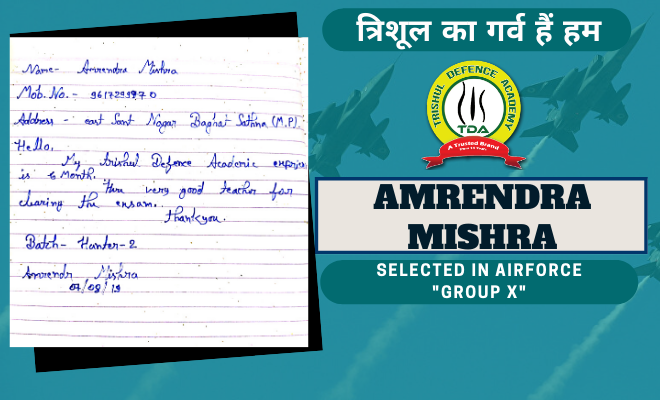 Name- Amrendra Mishra
Mob. No. - 9617299970
Address - east Sant Nagar Baghat Sathna (M.P).
Hello,
My Trishul Defence Academic
is 6 Month. very good teacher for
clearing the exsam.
Thankyou.
Batch- Hunter-2
Amrendr Mishra
07/08/19
त्रिशूल का गर्व हैं हम
TRISHUL DEFENCE ACADEMY
TDA
A Trusted Brand
AMRENDRA
MISHRA
SELECTED IN AIRFORCE
"GROUP X"